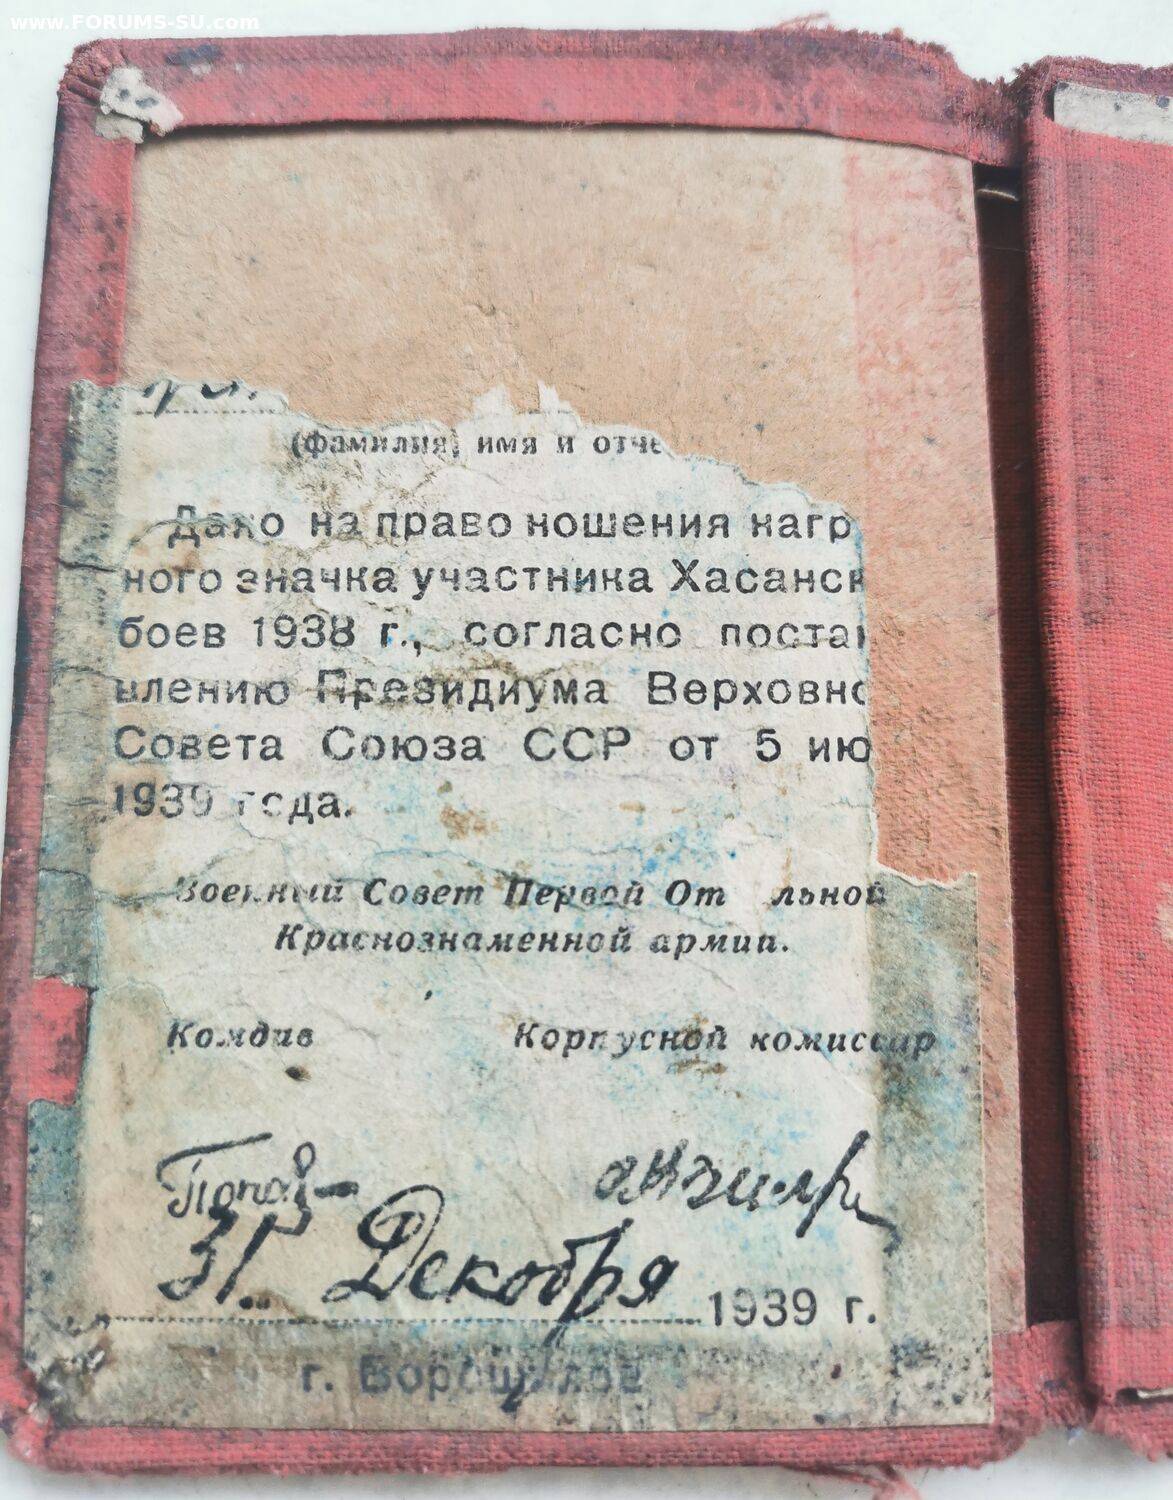 www.FORUMS-SU.com
(фамилия, имя и отче
Дано на право ношения нагр
ного значка участника Хасанск
боев 1938 г., согласно постан
влению Президиума Верховно
Совета Союза ССР от 5 ию
1939 года.
Военный Совет Первой От льной
Краснознаменной армии.
Комдив Корпусной комиссар
31 Декабря 1939 г.
г. Ворошилов